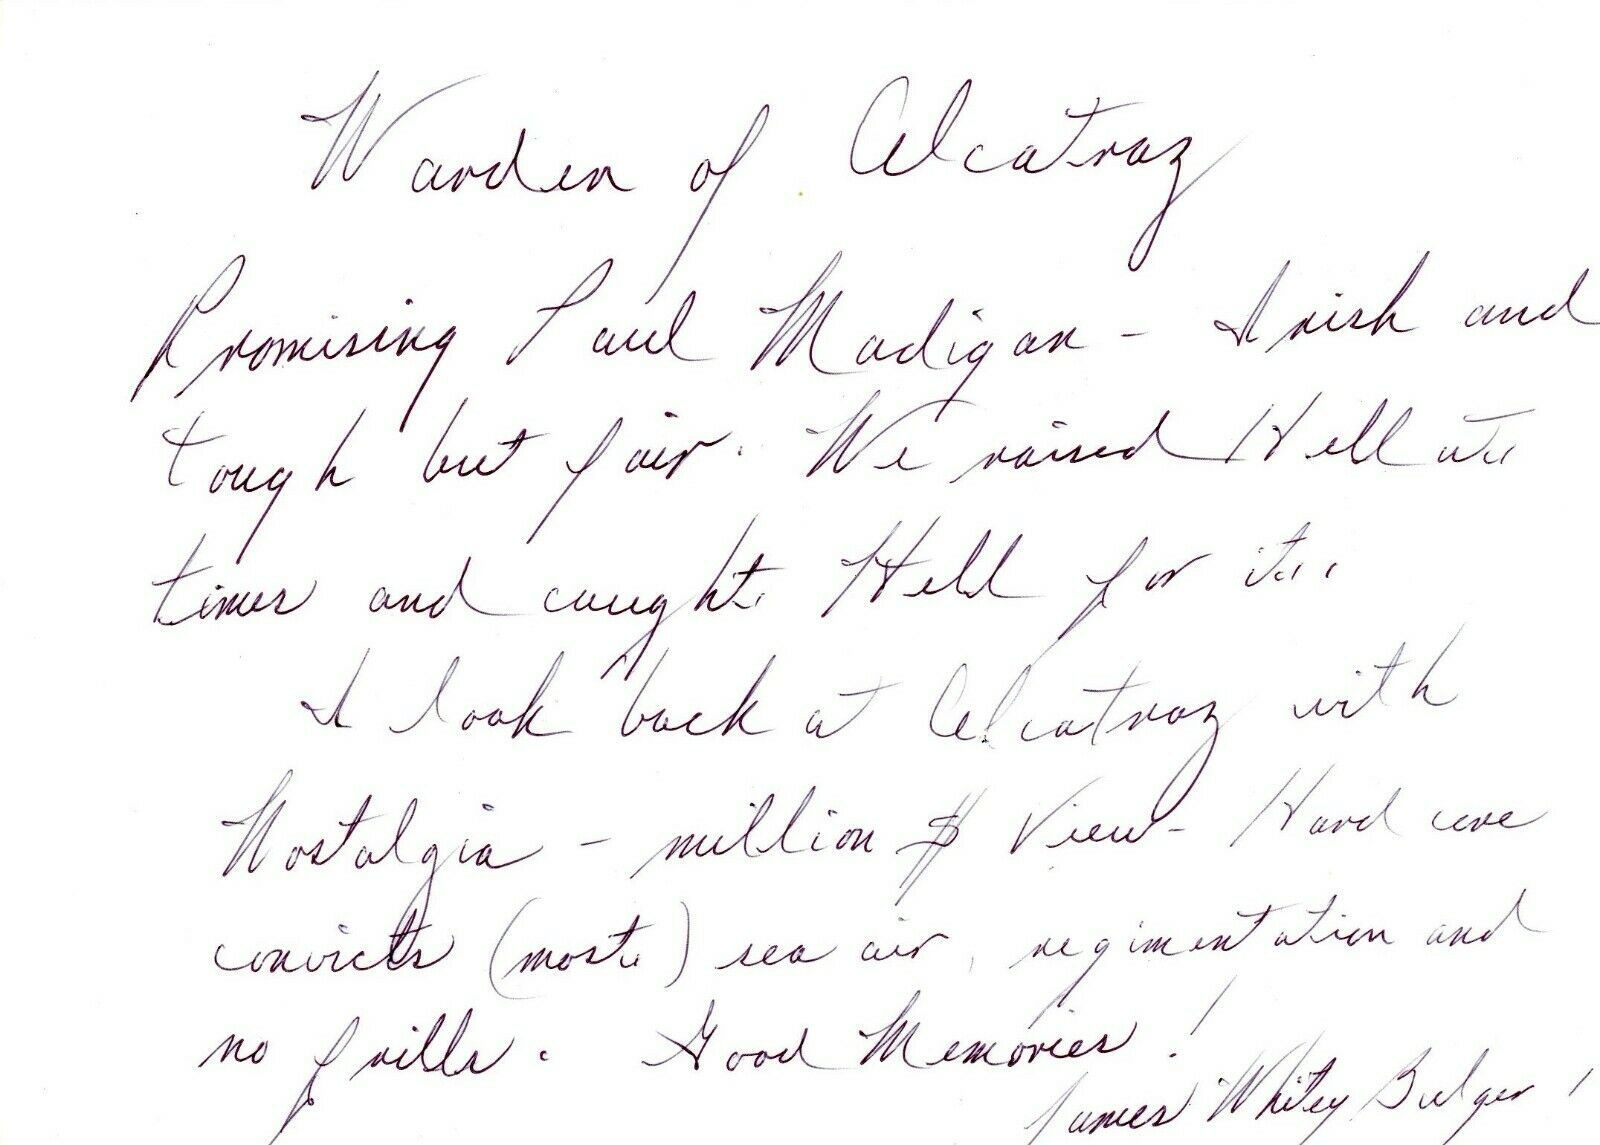 Warden of Alcatraz
Promising Paul Madigan - Irish and
tough but fair. We raised Hell at
times and caught Hell for it..
I look back at Alcatraz with
Nostalgia - million $ View - Hard core
convicts (most) sea air, regimentation and
no frills. Good Memories!
James Whitey Bulger!